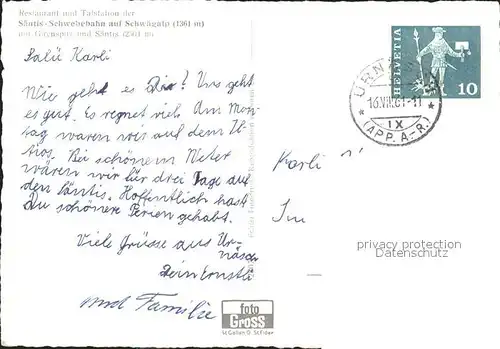 Restaurant und Talstation der
Säntis-Schwebebahn auf Schwägalp (1361 m)
mit Girenspitz und Säntis (2504 m)
Salü Karli
Wie geht es Dir? Uns geht
es gut. Es regnet viel. Am Mon-
tag waren wir auf dem
Bei schönem Weter
wären wir für drei Tage auf
den Säntis. Hoffentlich hast
Du schönere Ferien gehabt.
Viele Grüsse aus Ur-
näsch
Dein Ernstli
und Familie
HELVETIA
10
URNÄSCH
IX
(APP. A.-R.)
Karli
Im
privacy protection
Datenschutz
foto
Gross
St.Gallen O St.Fiden